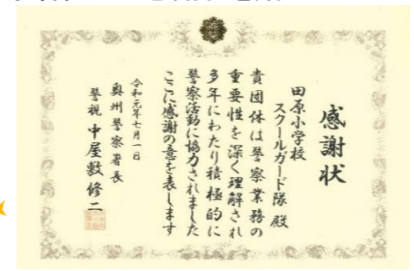 感謝状
田原小学校
スクールガード隊 殿
貴団体は警察業務の
重要性を深く理解され
多年にわたり積極的に
警察活動に協力されました
ここに感謝の意を表します
令和元年七月一日
奥州警察署長
警視 中屋敷修二